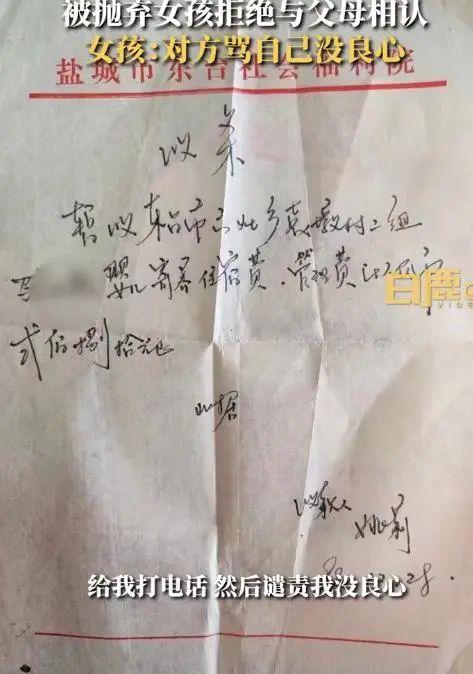 被抛弃女孩拒绝与父母相认
女孩:对方骂自己没良心
盐城市东台社会福利院
收条
暂收东台市 灶乡 村二组
婴儿寄养住宿费、管理费
贰佰捌拾元正
此据
收款人
姚莉
白鹿
VIDEO
给我打电话 然后谴责我没良心